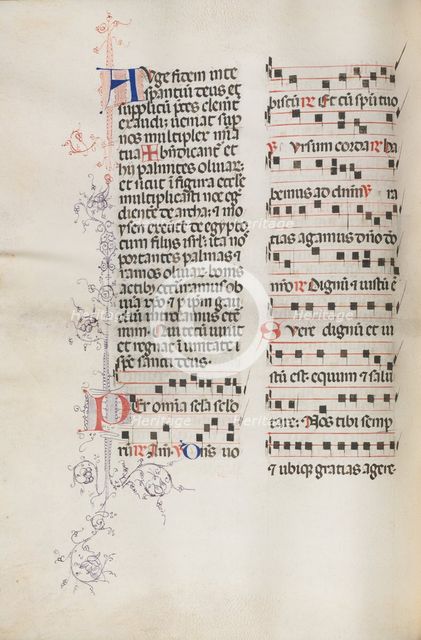 Auge fidem in te
sperantium deus et
supplicum preces clementer
exaudi: ueniat super
nos multiplex mia
tua ✠ bndicant et
hii palmites oliuar:
et sicut in figura eccle
multiplicasti noe eg
diente de archa: et mo
ysen exeuntem de egypto
cum filiis isrl: ita nos
portantes palmas et
ramos oliuar bonis
actibus occuramus ob
uia xpo: et per ipm gau
ium introeamus eter
num. Qui tecum uiuit
et regnat in unitate
spc sancti deus.
Per omnia secla seclo
rum R Am. V Dns uo
biscum R Et cum spiritu tuo
V Sursum corda R ha
bemus ad dominum V Gra
tias agamus dno deo
nostro R Dignum et iustum est
Vere dignum et iu
stum est equum et salu
tare: Nos tibi semper
et ubique gratias agere
Heritage
Heritage
Heritage
Heritage
Heritage